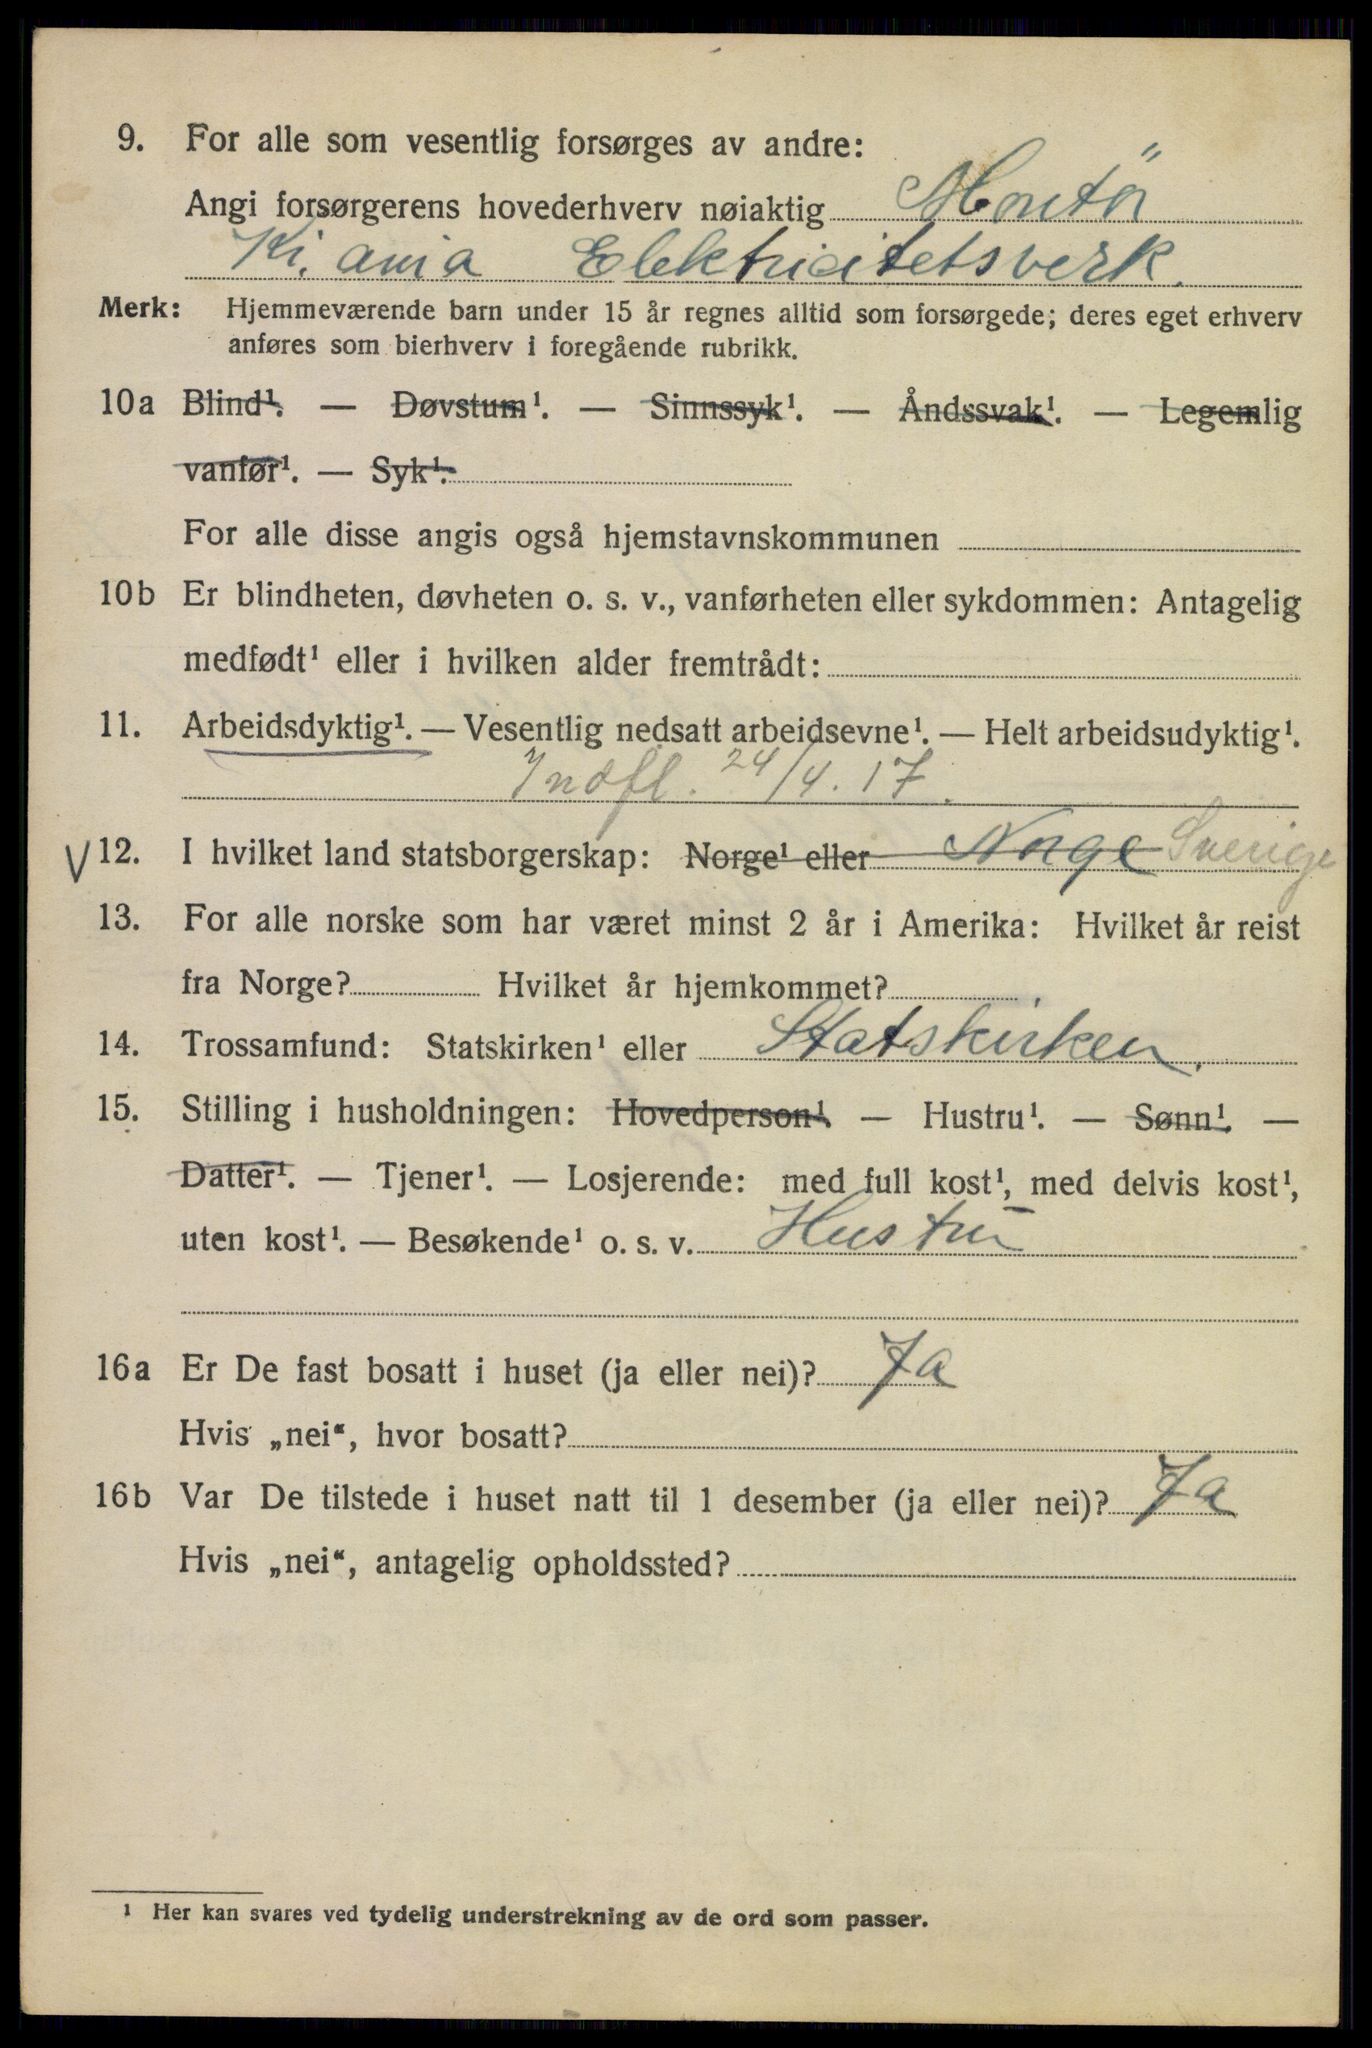 9. For alle som vesentlig forsørges av andre:
Angi forsørgerens hovederhverv nøiaktig Montör
Kr.ania Elektricitetsverk.
Merk: Hjemmeværende barn under 15 år regnes alltid som forsørgede; deres eget erhverv
anføres som bierhverv i foregående rubrikk.
10a Blind¹. — Døvstum¹. — Sinnssyk¹. — Åndssvak¹. — Legemlig
vanfør¹. — Syk¹.
For alle disse angis også hjemstavnskommunen
10b Er blindheten, døvheten o. s. v., vanførheten eller sykdommen: Antagelig
medfødt¹ eller i hvilken alder fremtrådt:
11. Arbeidsdyktig¹. — Vesentlig nedsatt arbeidsevne¹. — Helt arbeidsudyktig¹.
Indfl. 24/4. 17.
V 12. I hvilket land statsborgerskap: Norge¹ eller Norge Sverige
13. For alle norske som har været minst 2 år i Amerika: Hvilket år reist
fra Norge? Hvilket år hjemkommet?
14. Trossamfund: Statskirken¹ eller Statskirken.
15. Stilling i husholdningen: Hovedperson¹. — Hustru¹. — Sønn¹. —
Datter¹. — Tjener¹. — Losjerende: med full kost¹, med delvis kost¹,
uten kost¹. — Besøkende¹ o. s. v. Hustru
16a Er De fast bosatt i huset (ja eller nei)? Ja
Hvis „nei“, hvor bosatt?
16b Var De tilstede i huset natt til 1 desember (ja eller nei)? Ja
Hvis „nei“, antagelig opholdssted?
¹ Her kan svares ved tydelig understrekning av de ord som passer.